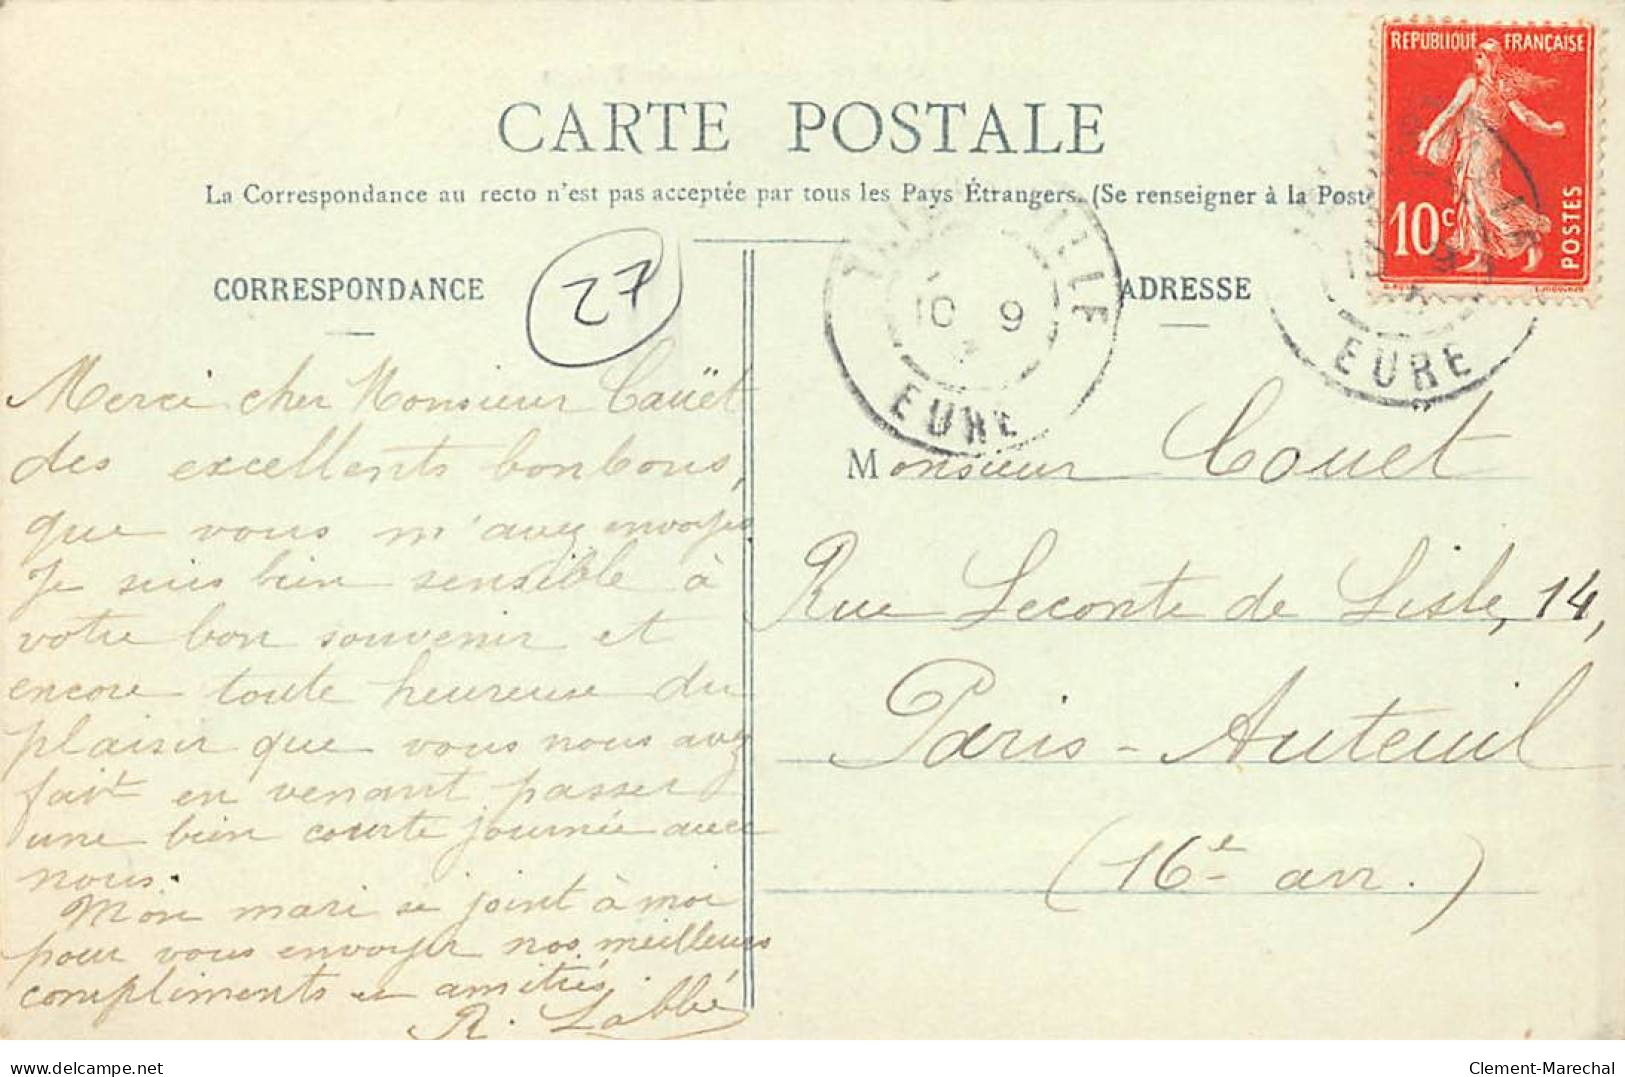 REPUBLIQUE FRANÇAISE
10c POSTES
CARTE POSTALE
La Correspondance au recto n'est pas acceptée par tous les Pays Étrangers. (Se renseigner à la Poste
27
CORRESPONDANCE
ADRESSE
10 9
EURE
10 9
EURE
Merci cher Monsieur Caüet
des excellents bonbons,
que vous m'avez envoyés
Je suis bien sensible à
votre bon souvenir et
encore toute heureuse du
plaisir que vous nous avez
fait en venant passer
une bien courte journée avec
nous.
Mon mari se joint à moi
pour vous envoyer nos meilleurs
compliments et amitiés.
R. Labbé
Monsieur Couet
Rue Leconte de Lisle, 14,
Paris - Auteuil
(16e arr.)
delcampe.net
Clement-Marechal